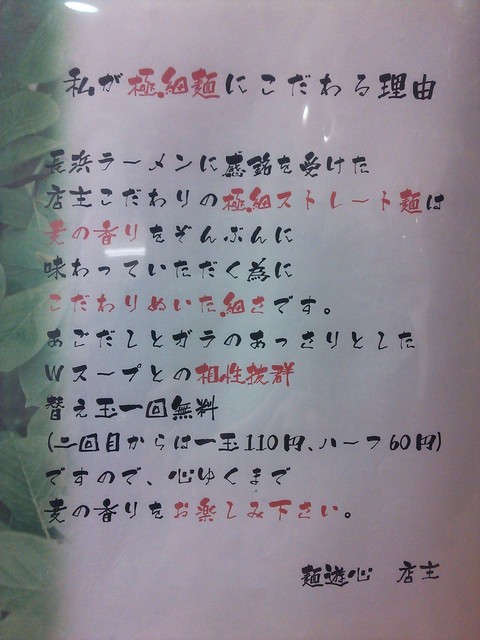 私が極細麺にこだわる理由
長浜ラーメンに感銘を受けた
店主こだわりの極細ストレート麺は
麦の香りをぞんぶんに
味わっていただく為に
こだわりぬいた細さです。
あごだしとガラのあっさりとした
Wスープとの相性抜群
替え玉一回無料
(二回目からは一玉110円、ハーフ60円)
ですので、心ゆくまで
麦の香りをお楽しみ下さい。
麺遊心 店主